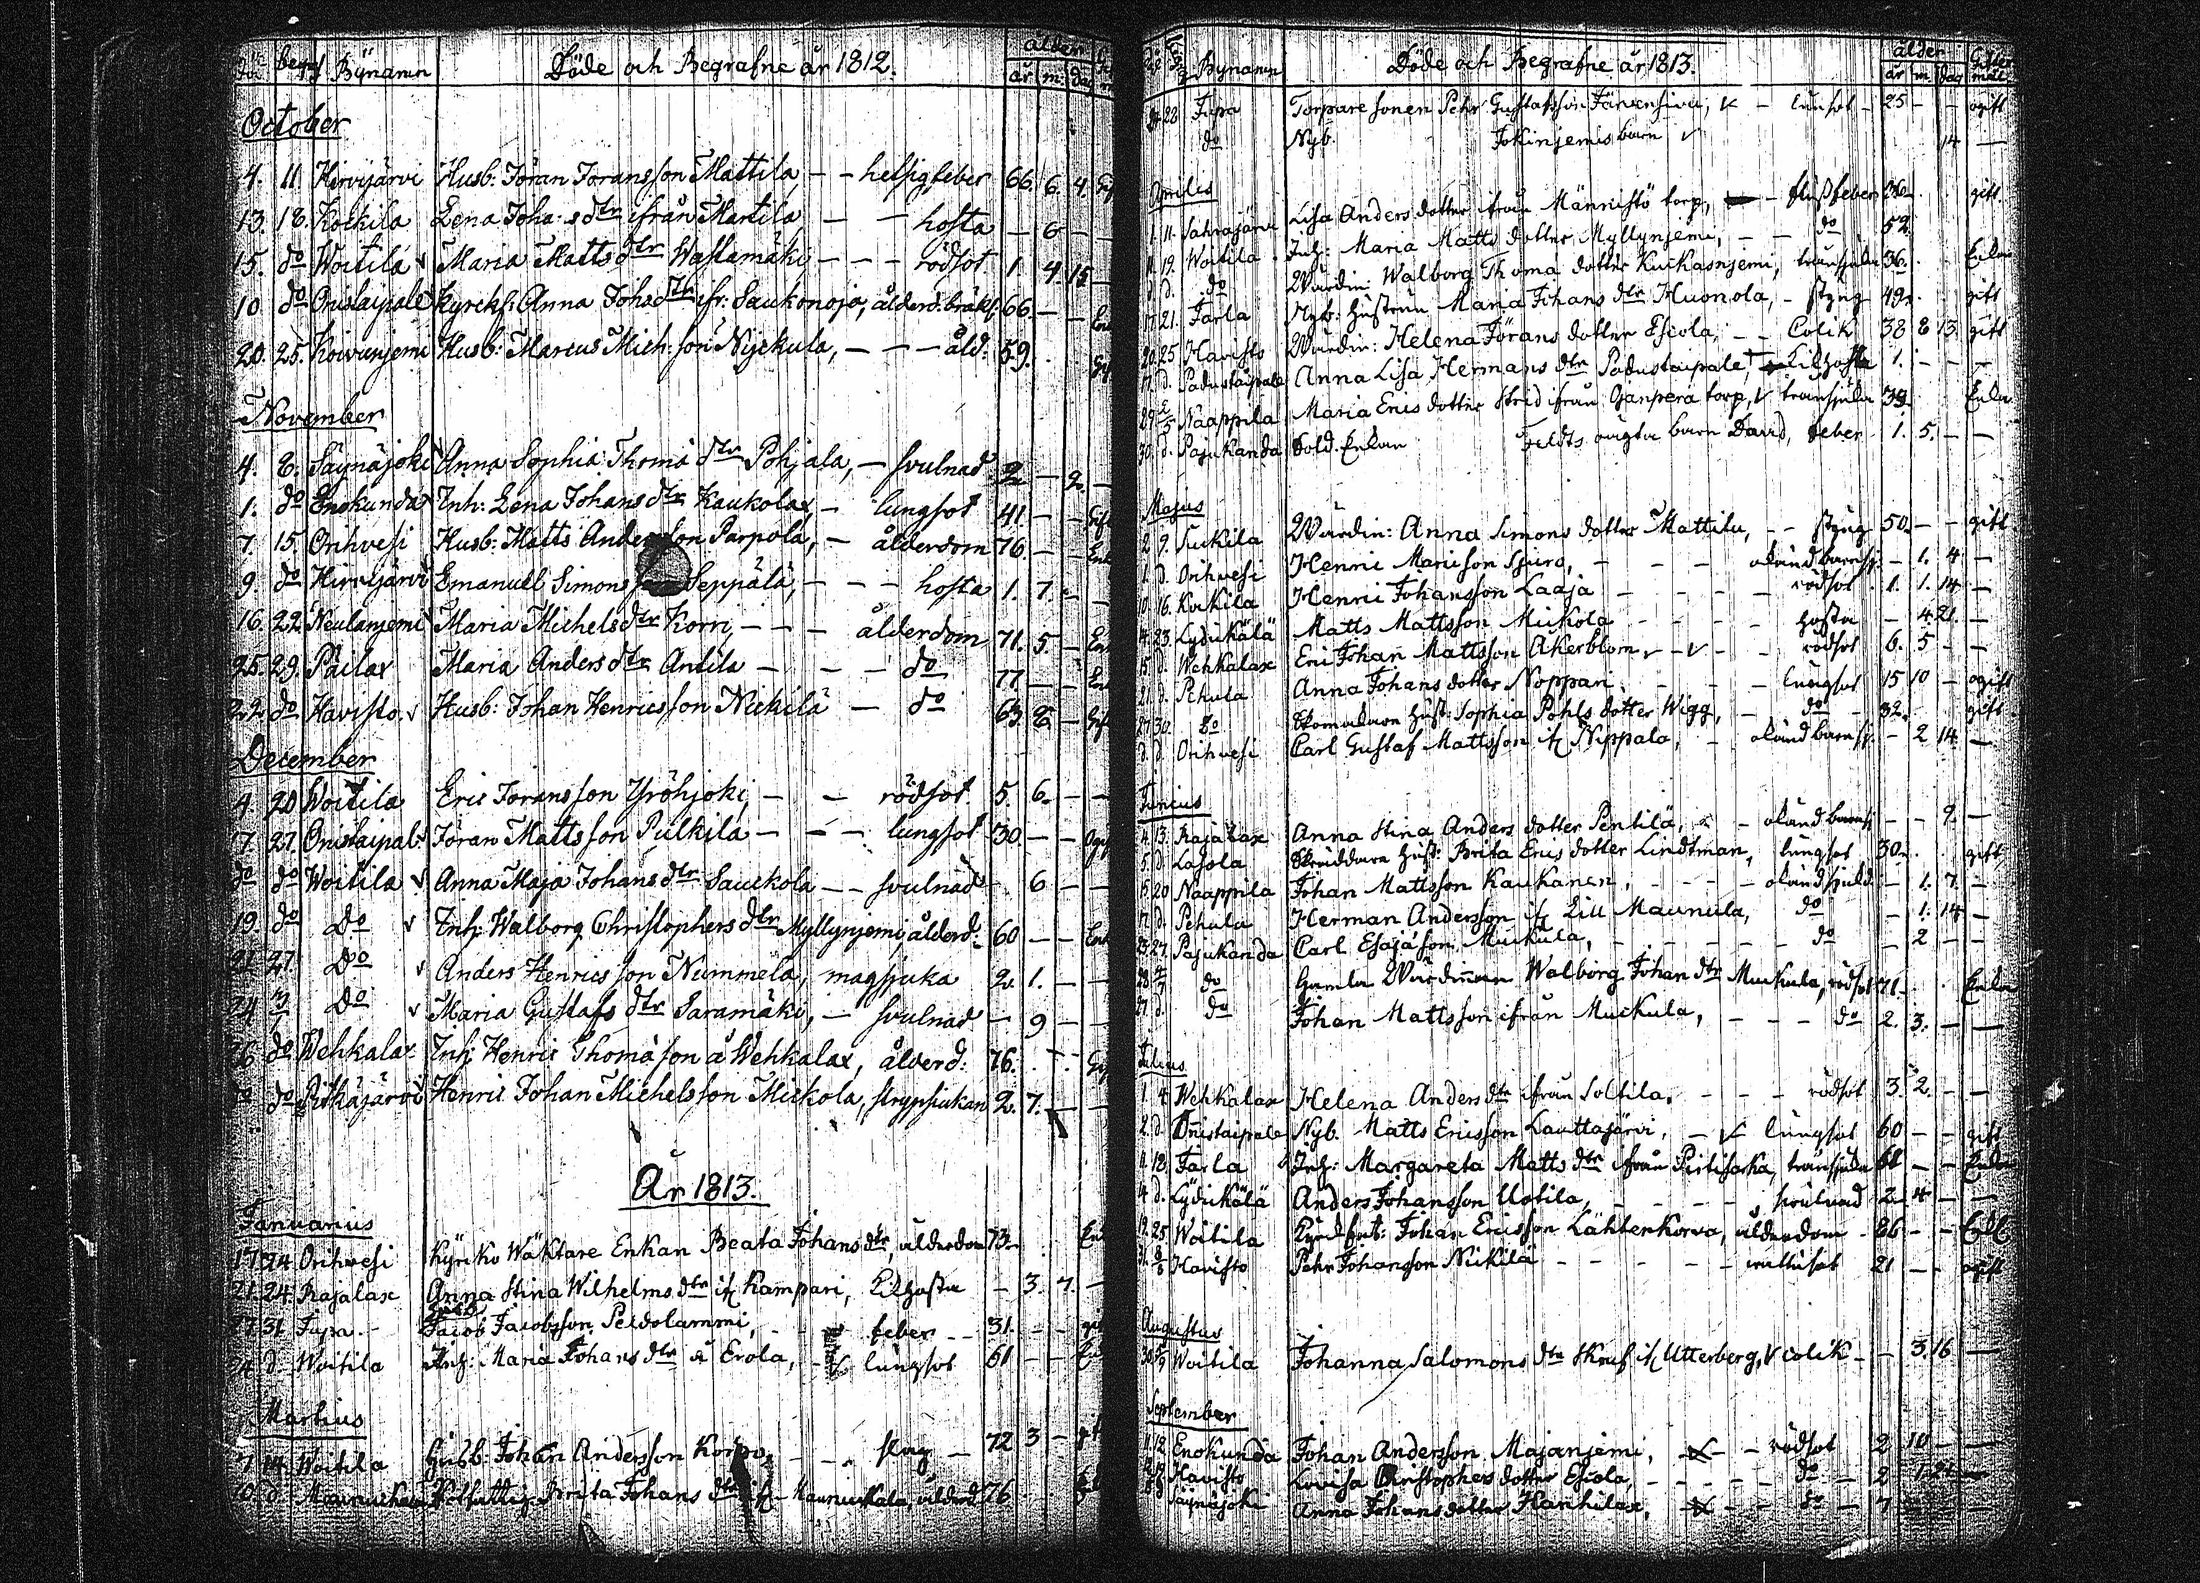 begr Bynamn Döde och Begrafne år 1812. ålder år m. dag
October
4. 11. Hirvijärvi Husb: Jöran Joransson Mattila, - - hetsigfeber 66. 6. 4. Gif
13. 18. Kockila Lena Joha:s dtr ifrån Martila, - - hosta - 6 - -
15. do Woitila Maria Matts dtr Wastamäki, - - - rödsot 1 4. 15 -
10 do Onistaipale Kyrckf: Anna Johs dtr ifr: Saukonoja, ålderd:bräkl: 66. - - En
20. 25. Koivunjemi Husb: Marcus Mich:son Nyckula, - - - åld: 59. Gif
November
4. 8. Säynäjoki Anna Sophia Thomä dtr Pohjala, - svulnad 2. - 2. -
1. do Enokunda Inh: Lena Johans dtr Kaukola, - lungsot 41 - - Gift
7. 15. Orihvesi Husb: Matts Andersson Parpola, - ålderdom 76. - - Enk
9. do Hirvijärvi Emanuell Simonsson Seppälä, - - - hosta 1. 7. - -
16. 22. Neulanjemi Maria Michels dtr Korri, - - - ålderdom 71. 5 - Enk
25. 29. Päilax Maria Anders dtr Antila - - - do 77 - - En
22. do Havisto Husb: Johan Henricsson Neckilä - do 63. 8 - Gif
December
4. 20 Woitila Eric Joransson Yröhjoki, - - rödsot. 5. 6. - -
7. 27. Onistaipal Jöran Mattsson Pulkila - - - lungsot 30 - - Ogif
do do Woitila Anna Maja Johans dtr Sauckola - - svulnad - 6 - -
19. do Do Inh: Walborg Christophers dtr Myllynjemi, ålderd: 60 - - Enk
21 27. Do Anders Henricsson Nummela, magsjuka 2. 1. - -
24 Do Maria Gustafs dtr Saramäki, - svulnad - 9 - -
26 do Wehkalax Inh: Henric Thomäson å Wehkalax, ålderd: 76. Gif
do Pitkäjärvi Henric Johan Michelsson Mickola, strypsjukan 2. 7. - -
År 1813.
Januarius
17 24 Orihvesi Kyrcko Wäktare Enkan Beata Johans dtr, ålderdom 73. Enk
21. 24. Rajalax Anna Stina Wilhelms dtr if Kampari, Kikhosta - 3. 7. -
27 31 Jupa - Husb. Jacob Jacobsson Peldolammi, - - feber - - 31. - - gif
24 d. Woitila Inh: Maria Johans dtr å Erola, - lungsot 61 - - En
Martius
7. 14. Woitila Husb: Johan Andersson Korpo, - - slag - 72 3 - gift
10. d. Maunuskala Brita Johans dtr if Maunuskala, ålderd 76.
Bynamn Döde och Begrafne år 1813. ålder år m dag Gifter mål
28 Jupa Torpare sonen Pehr Gustafsson Järvensivu, - lungsot - 25 - - ogift
do Nyb. Jokinjemis barn 14 -
Aprilis
1. 11. Sahrajärvi Lisa Anders dotter ifrån Männistö torp, - flussfeber 36 - gift.
11. 19. Woitila Inh: Maria Matts dotter Myllynjemi, - - do 52.
d. do Wärdin: Walborg Thomä dotter Kuckasnjemi, 36. Enka
17. 21. Tarla Nyb: Hustrun Maria Johans dtr Huonola, - styng 49. gift
20. 25 Havisto Wärdin: Helena Jörans dotter Eskola, - - Colik 38 8 13. gift
d. Padustaipale Anna Lisa Hermans dtr Padustaipale, Kikhosta 1. - - -
29 2/5 Naappila Maria Erics dotter Strid ifrån Ojanpera torp, 39. Enka
30. d. Pajukanda Sold. Enkan Feldts oägta barn David, feber 1. 5. - -
Majus
2 9. Kuckila Wärdin: Anna Simons dotter Mattila, - - styng 50. - - gift.
1. d. Orihvesi Henric Maricson Sjuro, - - - okänd barnsj: - 1. 4 -
10. 16. Kockila Henric Johansson Laaja - - - - rödsot 1. 1. 14 -
14. 23. Lydikälä Matts Mattsson Mickola - - - - hosta - 4 21. -
15 d. Wehkalax Eric Johan Mattsson Åkerblom, - - - rödsot 6. 5 - -
21. d. Pehula Anna Johans dotter Noppari - - - - lungsot 15 10 - ogift
27 30. do Skomakaren Hust: Sophia Pohls dotter Wigg, - do - 32. gift.
d. d. Orihvesi Carl Gustaf Mattsson if Nippala, - okänd barnsj: - 2 14. -
Junius
4. 13. Rajalax Anna Stina Anders dotter Pentilä, - okänd barnsj - - 9. -
5. d. Lasola Skräddaren Hust: Brita Erics dotter Lindtman, lungsot 30. gift
15. 20 Naappila Johan Mattsson Kaukanen, - - - okänd sjukd. - 1. 7. -
17. d. Pehula Herman Andersson if Lill Maunula, do - 1. 14 -
25. 27. Pajukanda Carl Esajäson Muckula, - - - - - do - 2 - -
28 4/7 do Gamla Wärdinnan Walborg Johan dtr Muckula, rödsot 71 - Enka
27. d. do Johan Mattsson ifrån Muckula, - - - do 2. 3. - -
Julius
1. 4 Wehkalax Helena Anders dtr ifrån Soltila, - - - rödsot 3. 2. - -
2. d. Onistaipale Nyb. Matts Ericsson Lauttajärvi, - lungsot 60 - - gift
11. 18. Tarla Inh: Margareta Matts dtr ifrån Pirtisarka, 61 - - Enka
14 d. Lydikälä Anders Johansson Uotila, - - - - svulnad 2 4 - -
19. 25. Woitila Johan Ericsson Lähtenkorva, ålderdom - 86 - - Enkl
8/8 Havisto Pehr Johansson Nickilä - - - - - 21 - - ogift
Augustus
Woitila Johanna Salomons dtr Skruf if Utterberg, colik - - 3. 16 -
September
12 Enokunda Johan Andersson Majanjemi, - - rödsot 2 10 - -
Havisto Lovisa Christophers dotter Eskola, - - - - do - 2
Säynäjoki Anna Johans dotter Hankilax, - - - do - 7